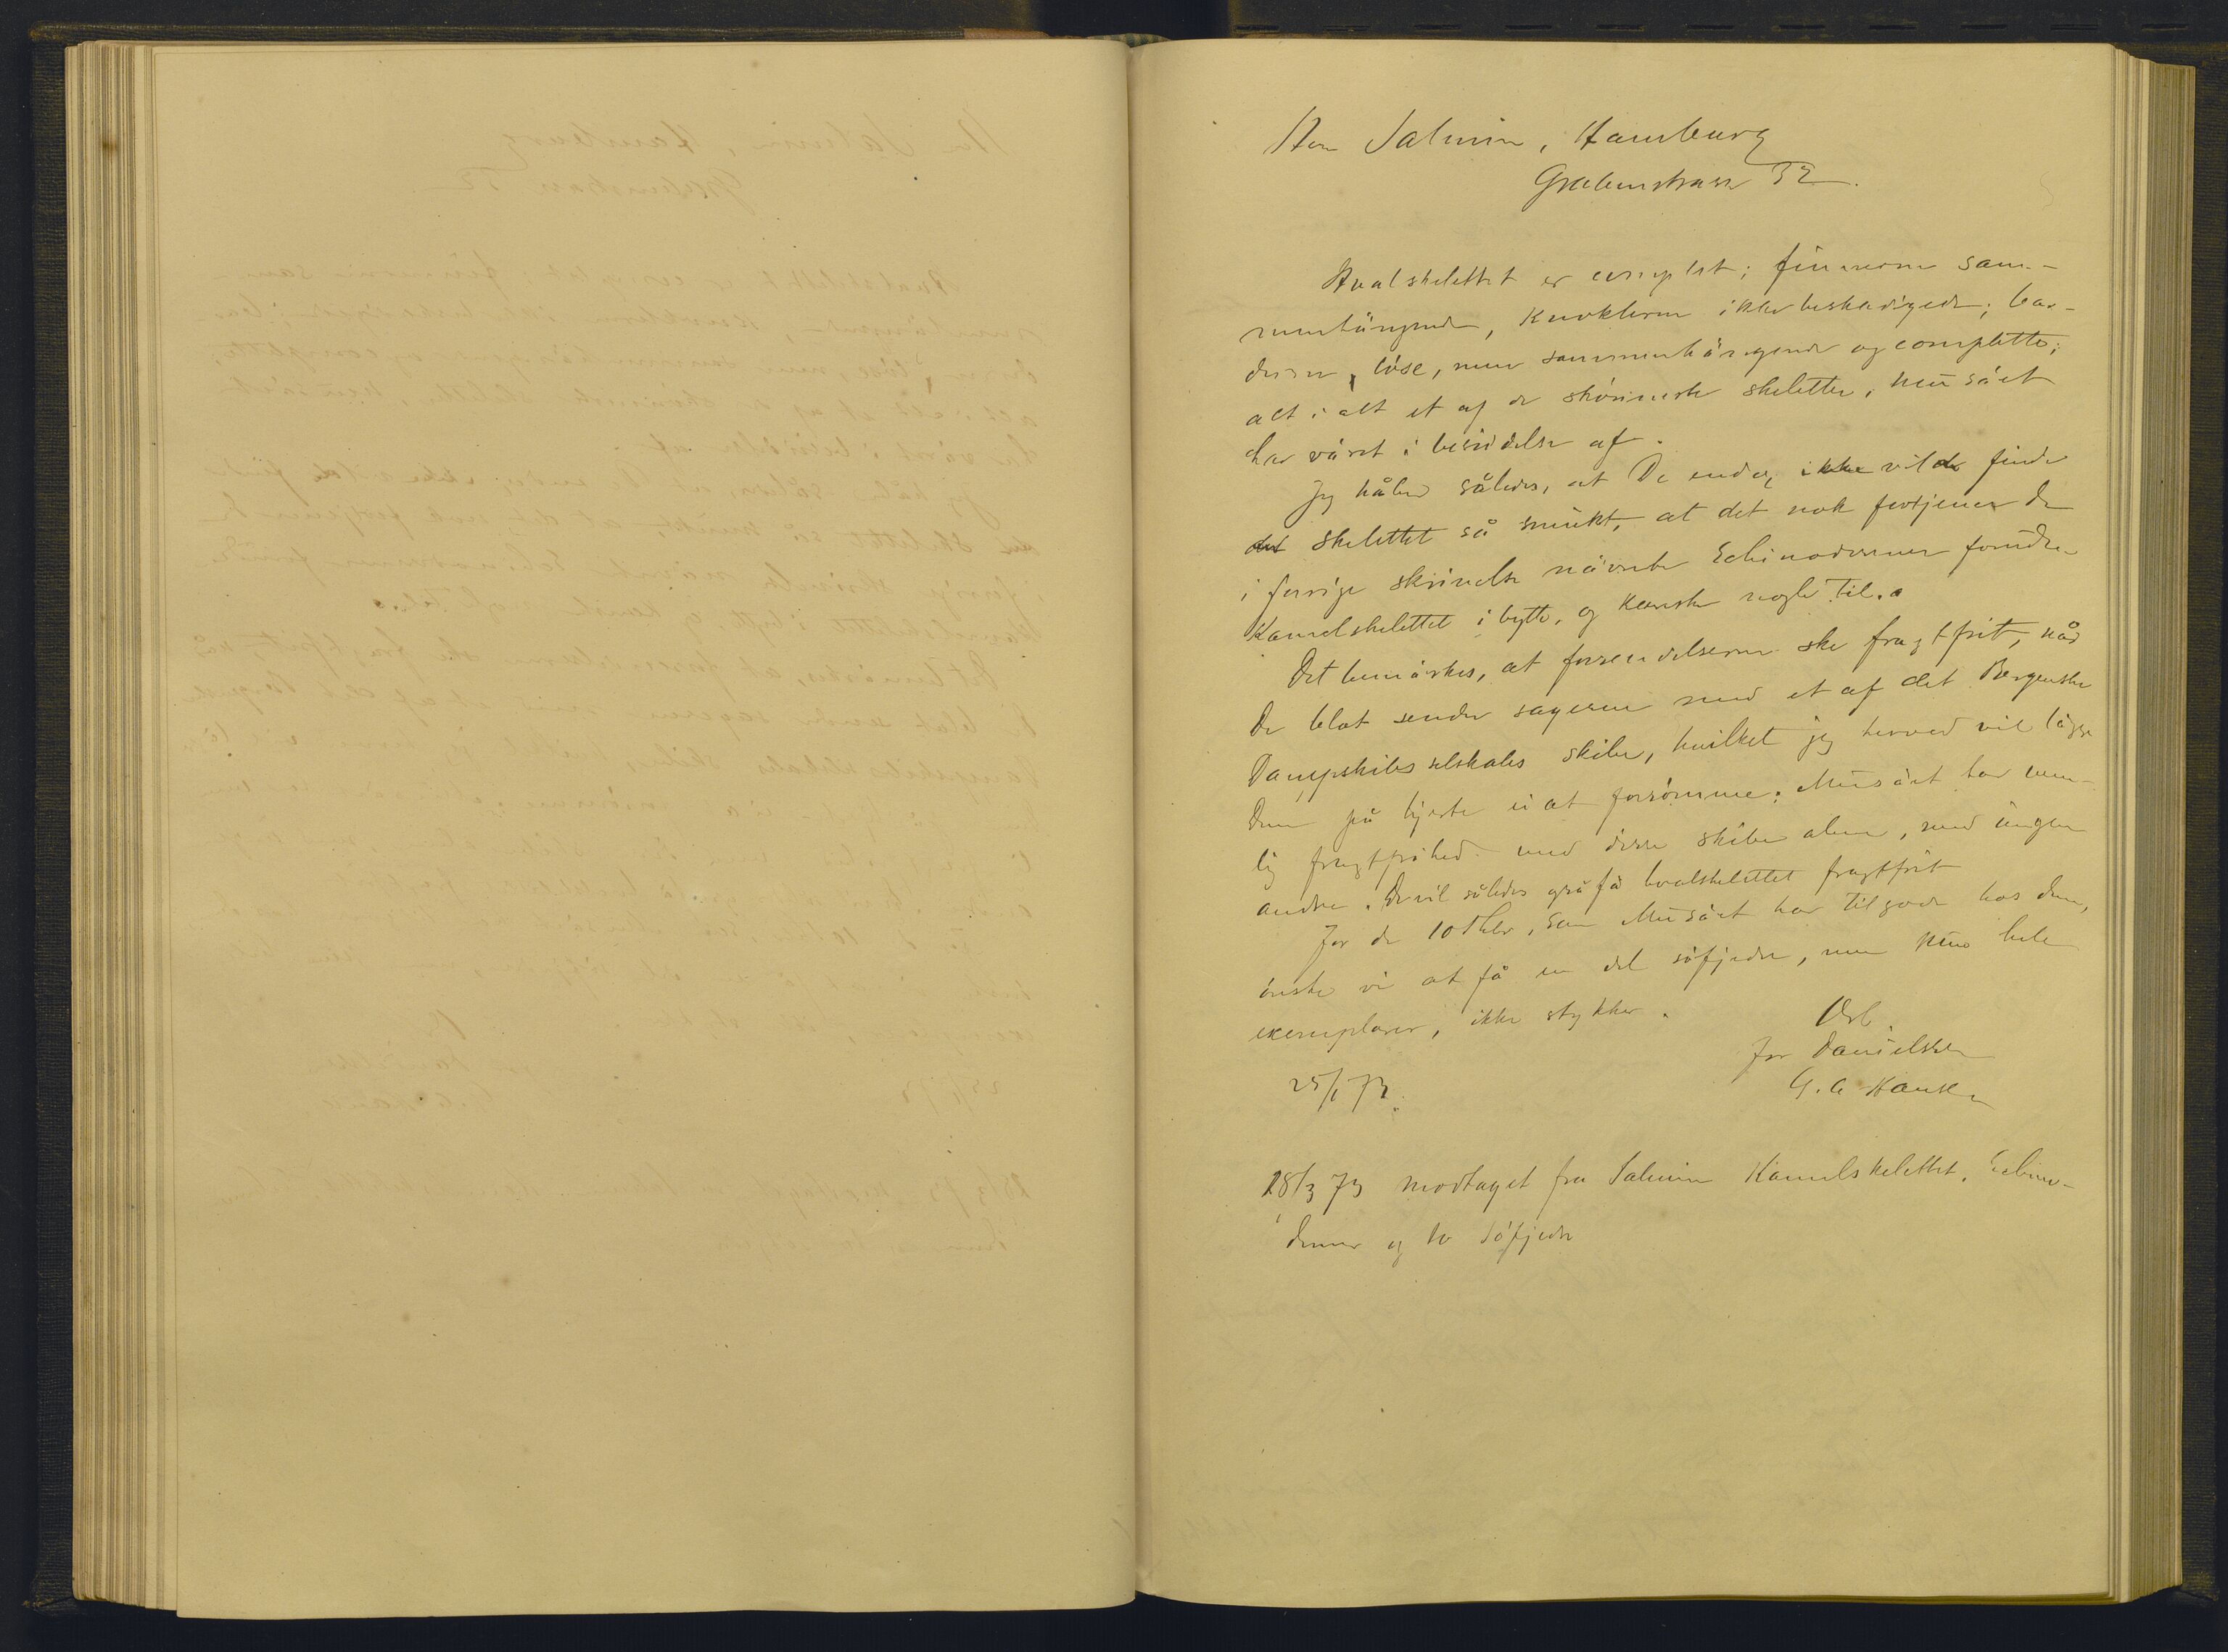 Herr Salmin, Hamburg
Grabenstrasse 32.
Hvalskelettet er complet; finnerne sam-
menhängende, knoklerne ikke beskadigede; bar-
derne löse, men sammenhängende og complette;
alt i alt et af de skönneste skeletter, museet
har väret i besiddelse af.
Jeg håber således, at De endog ikke vilde finde
det skelettet så smukt, at det nok fortjener de
i forrige skrivelse nävnte Echinodermer foruden
Kamelskelettet i bytte, og kanske nogle til.
Det bemärkes, at forsendelserne ske fragtfrit, når
De blot sender sagerne med et af det Bergenske
Dampskibsselskabs skibe, hvilket jeg herved vil lägge
Dem på hjerte ei at forsömme; Museet har nem-
lig fragtfrihed med disse skibe alene, med ingen
andre. De vil således også få hvalskelettet fragtfrit
For de 10 Thlr, som Museet har tilgode hos dem,
önske vi at få en del söfjedre, men kun hele
exemplarer, ikke stykker.
Ærb.
for Danielssen
G. A Hansen
25/1 73.
28/3 73 modtaget fra Salmin Kamelskelettet, Echino-
dermer og to Söfjedre